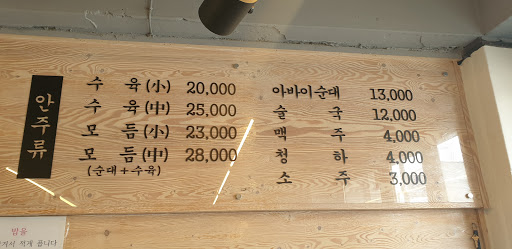 안주류
수 육 (小) 20,000
수 육 (中) 25,000
모 듬 (小) 23,000
모 듬 (中) 28,000
(순대+수육)
아바이순대 13,000
술 국 12,000
맥 주 4,000
청 하 4,000
소 주 3,000
밥을
적게 풉니다